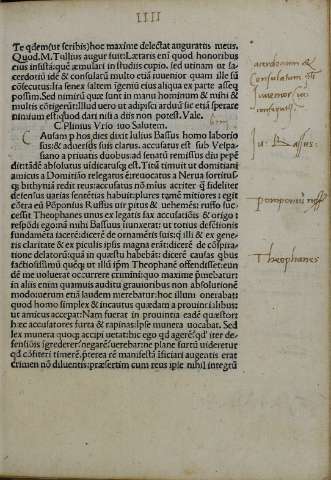 IIII
Te qdem(ut scribis)hoc maxime delectat auguratus meus,
Quod.M.Tullius augur fuit:Lætaris eni quod honoribus
eius insistā:quē æmulari in studiis cupio. sed utinam ut sa,
cerdotiū idē & consulatū multo etiā iuuenior quam ille sū
cōsecutus:Ita senex saltem igeniū eius aliqua ex parte asseq
possim. Sed nimirū quæ sunt in manu hominum & mihi &
multis cōtigerūt:Illud uero ut adipisci arduū sic etiā sperare
nimium est:quod dari nisi a diis non potest. Vale.
C Plinius Vrso suo Salutem.
C Ausam p hos dies dixit Iulius Bassus homo laborio
sus:& aduersis suis clarus. accusatus est sub Vespa,
siano a priuatis duobus:ad senatū remissus diu pepē
dit:tādē absolutus uidicatusq; est. Titū timuit ut domitiani
amicus a Domitiāo relegatus ē:reuocatus a Nerua sortitusq
q; bithyniā rediit reus:accusatus nō mius acriter q̄ fideliter
defensus uarias sentētias habuit:plures tamē mitiores: egit
cōtra eū Pōponius Rufus uir pitus & uehemēs: rufo suc,
cessit Theophanes unus ex legatis fax accusatiōis & origo:
respōdi ego:nā mihi Bassus iniunxerat: ut totius defēsionis
fundamēta iacerē:dicerē de ornamētis suis:q̄ illi & ex gene,
ris claritate & ex piculis ipsis magna erāt:dicerē de cōspira,
tione delatorū:quā in quæstu habebāt: dicerē causas qbus
factiosissimū quēq; ut illū ipsum Theophanē offendisset:eun
dē me uoluerat occurrere crimini:quo maxime pmebatur:
in aliis enim quamuis auditu grauioribus non absolutionē
modo:uerum etiā laudem merebatur:hoc illum onerabat:
quod homo simplex & incautus quædam a prouincialibus:
ut amicis accepat:Nam fuerat in prouintia eadē quæstor:
hæc accusatores furta & rapinas:ipse munera uocabat. Sed
lex munera quoq; accipi uetat:hic ego qd agerē?qd iter de
fensiōis igrederer?negarē?uerebar:ne plane furtū uideretur
qd cōfiteri timerē.pterea rē manifestā ificiari augentis erat
crimen nō diluentis:præsertim cum reus ipse nihil integrū
Consulatum
iuuenior
Iu. Bassus:
pomponius ruf
Theophanes